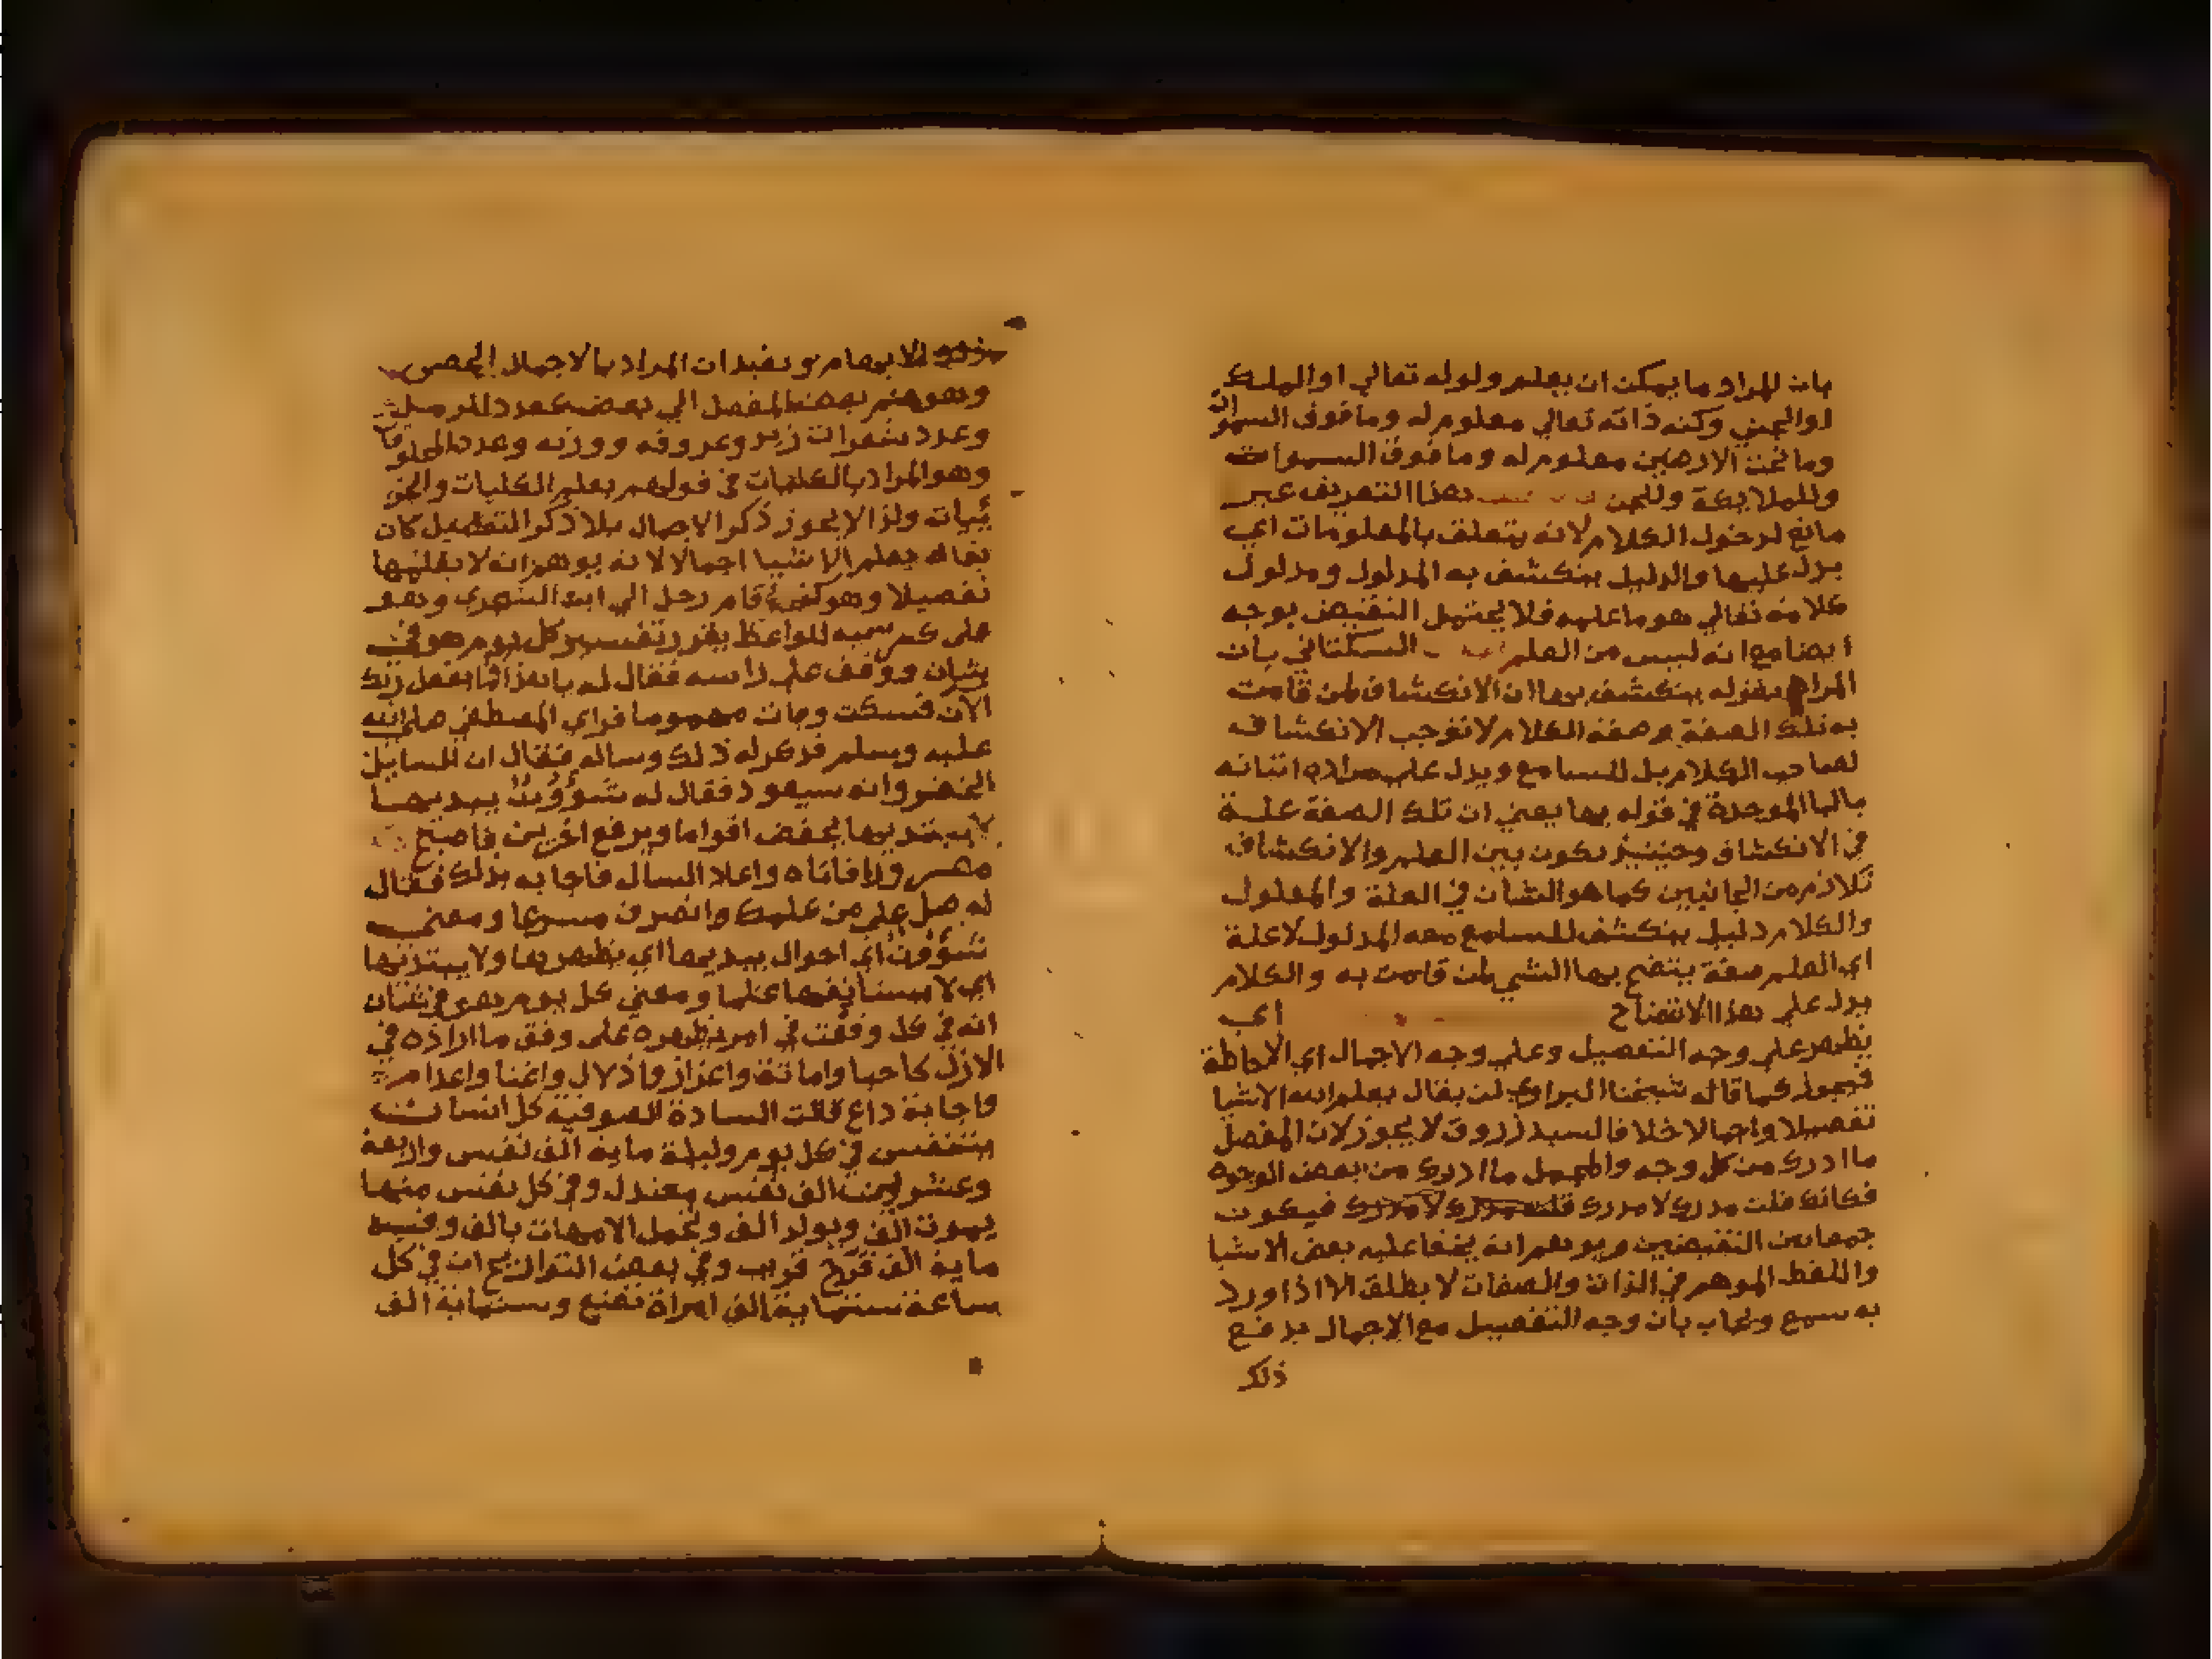 بان المراد ما يمكن ان يعلم ولوله تعالي او الملك
لوالجن وكنه ذاته تعالي معلوم له وما فوق السموات
وما تحت الارضين معلوم له وما فوق السموات
وللملايكة وللجن هذا التعريف غير
مانع لدخول الكلام لانه يتعلق بالمعلومات اي
يدل عليها والدليل ينكشف به المدلول ومدلول
كلامه تعالي هو ما علمه فلا يحتمل النقيض بوجه
ايضا مع انه ليس من العلم السكتاني بان
المراد بقوله ينكشف بها ان الانكشاف لمن قامت
به تلك الصفة وصفة الكلام لا توجب الانكشاف
لصاحب الكلام بل للسامع ويدل علي مراده اتيانه
بالبا الموحدة في قوله بها يعني ان تلك الصفة علة
في الانكشاف وحينيذ يكون بين العلم والانكشاف
تلازم من الجانبين كما هو الشان في العلة والمعلول
والكلام دليل ينكشف للسامع معه المدلول لا علة
اي العلم صفة يتضح بها الشي لمن قامت به والكلام
يدل علي هذا الاتضاح اي
يظهر علي وجه التفصيل وعلي وجه الاجمال اي الاحاطة
فيجوز كما قاله شيخنا البراوي ان يقال يعلم الله الاشيا
تفصيلا واجمالا خلافا لسيد زروق لا يجوز لان المفصل
ما ادرك من كل وجه والمجمل ما ادرك من بعض الوجوه
فكانك قلت مدرك لا مدرك قلت مدرك لا مدرك فيكون
جمعا بين النقيضين ويوهم انه يخفا عليه بعض الاشيا
واللفظ الموهم في الذات والصفات لا يطلق الا اذا ورد
به سمع ويجاب بان وجه التفصيل مع الاجمال يدفع
ذلك
ذلك الايهام ويفيد ان المراد بالاجمال
وهو ضم بعض المفصل الي بعض كعدد الرمل
وعدد شعرات زيد وعروقه ووزنه وعدد المخلوقا
وهو المراد بالكليات في قولهم يعلم الكليات والجز
ئيات ولذا لا يجوز ذكر الاجمال بلا ذكر التفصيل كان
يقال يعلم الاشيا اجمالا لانه يوهم انه لا يعلمها
تفصيلا وهو كفر قام رجل الي ابن الشجري وهو
علي كرسيه للواعظ يقرر تفسير كل يوم هو في
شان ووقف علي راسه فقال له يا هذا فما يفعل ربك
الآن فسكت وبات مهموما فراي المصطفي صلي الله
عليه وسلم فذكر له ذلك وساله فقال ان السايل
الخضر وانه سيعود فقال له شؤون يبديها
لا يبتديها يخفض اقواما ويرفع اخرين فاصبح
واعاد السال فاجابه بذلك فقال
له صل علي من علمك وانصرف مسرعا ومعني
شؤون اي احوال يبديها اي يظهرها ولا يبتديها
اي لا يستانفها علما ومعني كل يوم هو في شان
انه في كل وقت في امر يظهره علي وفق ما اراده في
الازل كاحيا واماتة واعزاز واذلال واغنا واعدام
واجابة داع قالت السادة الصوفية كل انسان
يتنفس في كل يوم وليلة ماية الف نفس واربعة
وعشرين الف نفس معتدل وفي كل نفس منها
يموت الف ويولد الف وتحمل الامهات بالف وفيه
ماية الف فرج قريب وفي بعض التواريخ ان في كل
ساعة ستماية الف امراة تضع وستماية الف